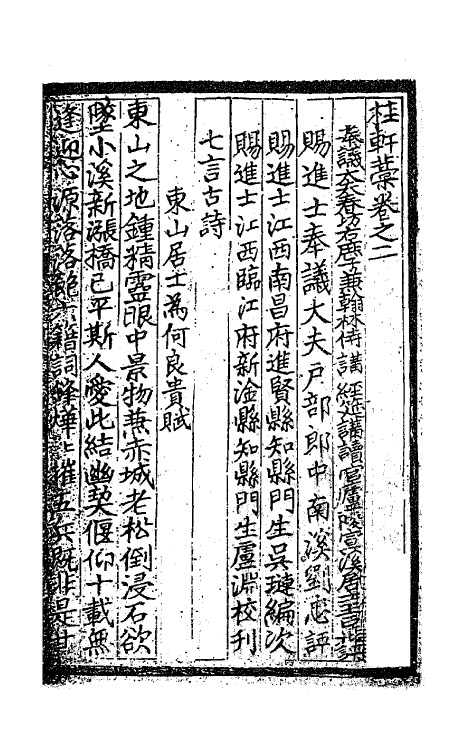 桂軒藁卷之二
奉議大夫春坊右庶子兼翰林侍講經筵講讀官廬陵
賜進士奉議大夫戶部郎中南溪劉忠評
賜進士江西南昌府進賢縣知縣門生吳璉編次
賜進士江西臨江府新淦縣知縣門生盧淵校刊
七言古詩
東山居士為何良貴賦
東山之地鍾精靈眼中景物無赤城老松倒浸石欲
墜小溪新漲橋已平斯人愛此結幽契偃仰十載無
逢迎心源落落飽六籍詞鋒燁燁摧五兵既非是